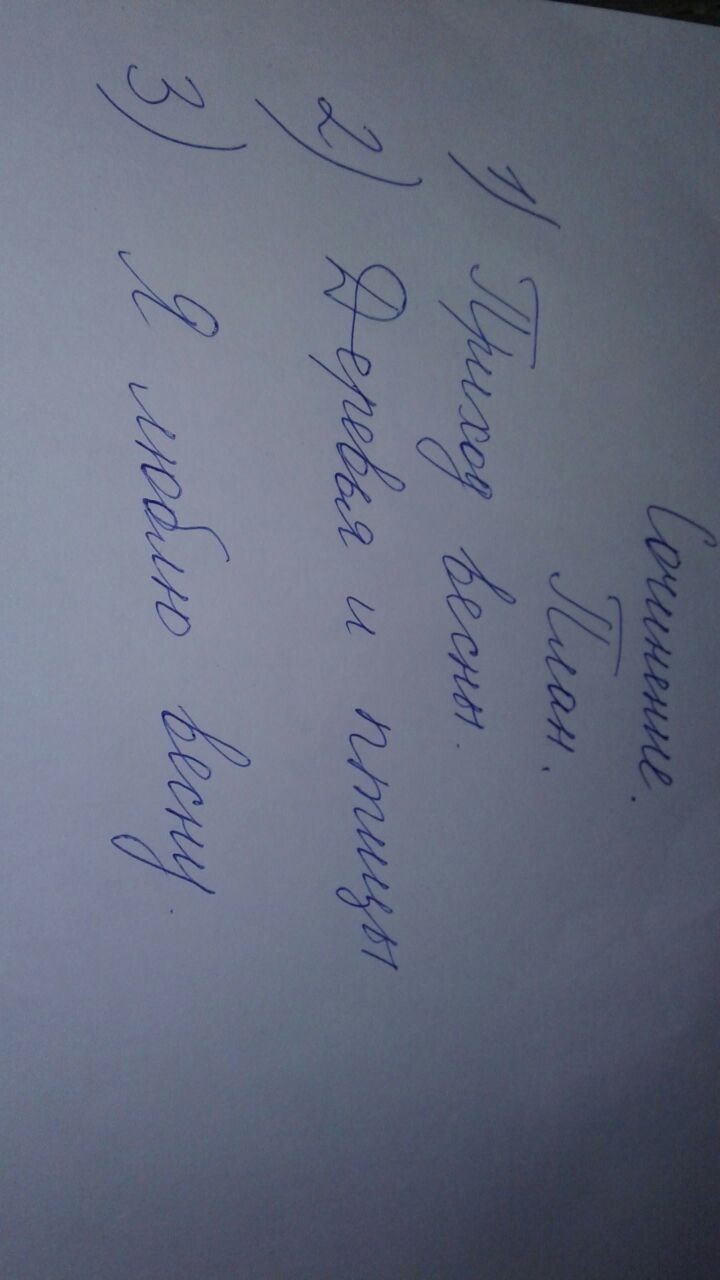 Сочинение.
План.
1) Приход весны.
2) Деревья и птицы
3) Я люблю весну.